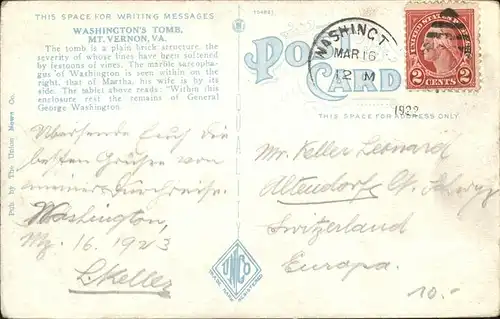 THIS SPACE FOR WRITING MESSAGES
WASHINGTON'S TOMB,
MT. VERNON, VA.
The tomb is a plain brick structure, the
severity of whose lines have been softened
by festoons of vines. The marble sarcopha-
gus of Washington is seen within on the
right, that of Martha, his wife is by its
side. The tablet above reads: "Within this
enclosure rest the remains of General
George Washington.
Übersende Euch die
besten Grüsse von
meiner Durchreise.
Washington,
Mz. 16. 1923
L. Keller
Pub. by The Union News Co.
POST CARD
WASHINGT
MAR 16
12 M
1922
UNITED STATES
2 CENTS 2
THIS SPACE FOR ADDRESS ONLY
Mr. Keller Leonard
Altendorf Ct. Schwyz
Switzerland
Europa.
UNCO
TRADE MARK REGISTERED
10.-